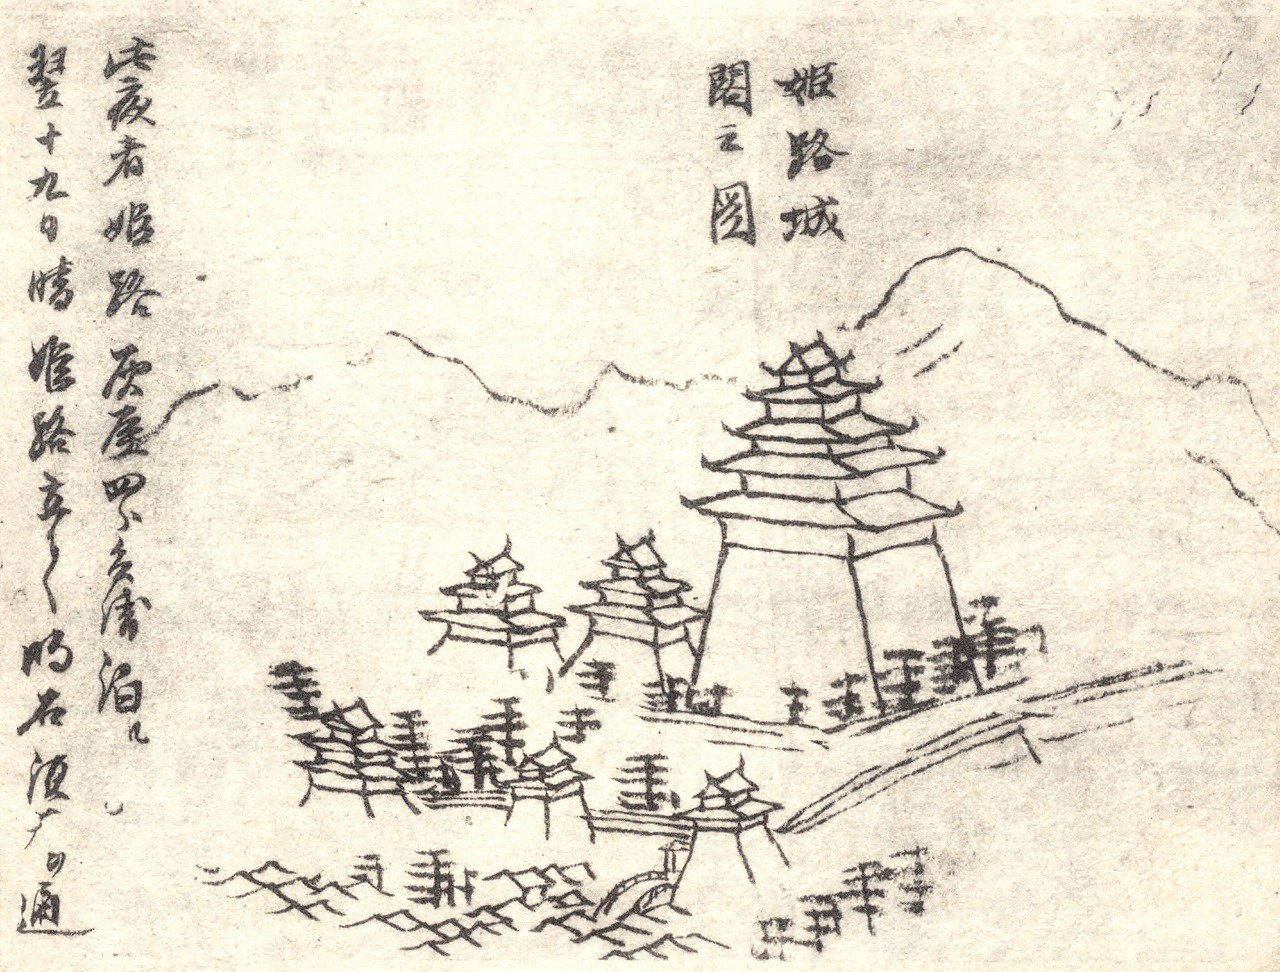 姫路城
閣之図
此夜者姫路灰屋四郎兵衛泊
翌十九日晴姫路立明石通